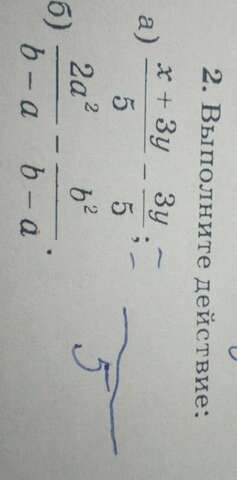 2. Выполните действие:
а) (x + 3y)/5 − 3y/5; =
б) 2a²/(b − a) − b²/(b − a).
5